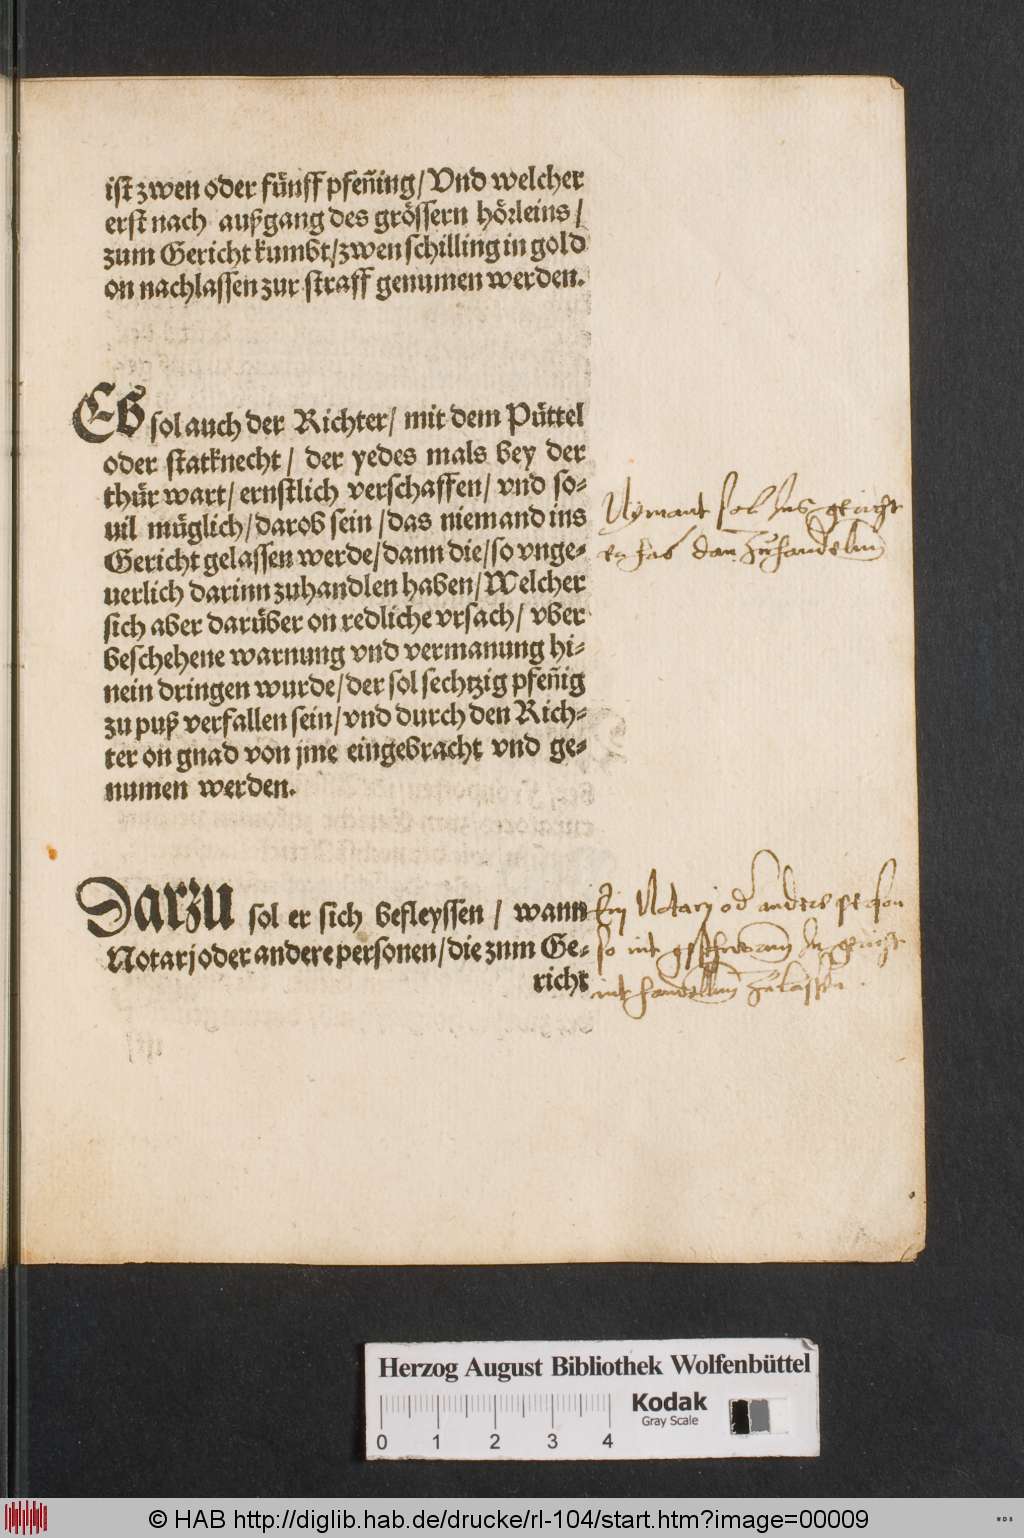 ist zwen oder fünff pfen̄ing/ Vnd welcher
erst nach außgang des grössern hörleins/
zum Gericht kumbt/ zwen schilling in gold
on nachlassen zur straff genumen werden.
Es sol auch der Richter/ mit dem Püttel
oder statknecht/ der yedes mals bey der
thür wart/ ernstlich verschaffen/ vnd so-
uil müglich/ darob sein/ das niemand ins
Gericht gelassen werde/ dann die/ so vnge-
uerlich darinn zuhandlen haben/ Welcher
sich aber darüber on redliche vrsach/ vber
beschehene warnung vnd vermanung hi-
nein dringen wurde/ der sol sechtzig pfen̄ig
zu puß verfallen sein/ vnd durch den Rich-
ter on gnad von jme eingebracht vnd ge-
numen werden.
Nymant sol Ins gericht
er hab dan zuhandeln
Darzu sol er sich befleyssen/ wann
Notarj oder andere personen/ die zum Ge-
richt
Notarj od anders person
so nit in gericht
nit handelln zulassen
Herzog August Bibliothek Wolfenbüttel
Kodak
Gray Scale
0 1 2 3 4
© HAB http://diglib.hab.de/drucke/rl-104/start.htm?image=00009